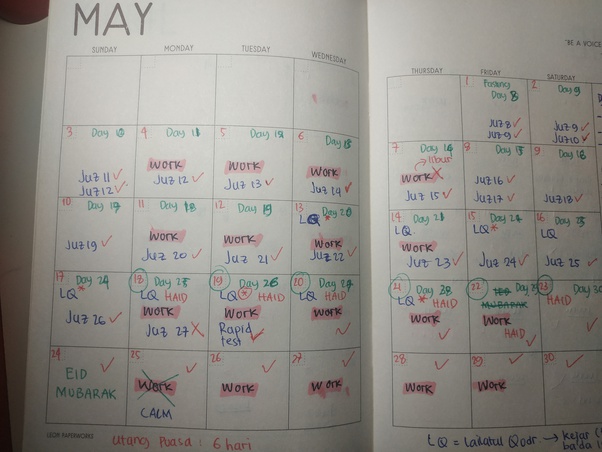 MAY
SUNDAY MONDAY TUESDAY WEDNESDAY THURSDAY FRIDAY SATURDAY
"BE A VOICE
1 Postung Day 8
Juz 8
Juz 9
2 Day 9
Juz 9
Juz 10
3 Day 10
Juz 11
Juz 12
4 Day 11
Work
Juz 12
5 Day 12
Work
Juz 13
6 Day 13
Work
Juz 14
7 Day 14
libur
Work
Juz 15
8 Day 15
Juz 16
Juz 17
9 Day 16
Juz 18
10 Day 17
Juz 19
11 Day 18
Work
Juz 20
12 Day 19
Work
Juz 21
13 Day 20
LQ *
Work
Juz 22
14 Day 21
LQ
Work
Juz 23
15 Day 22
LQ *
Juz 24
16 Day 23
LQ
Juz 25
17 Day 24
LQ *
Juz 26
18 Day 25
LQ HAID
Work
Juz 27
19 Day 26
LQ * HAID
Work
Rapid test
20 Day 27
LQ HAID
Work
21 Day 28
LQ * HAID
Work
22 Day 29
MUBARAK
Work
HAID
23 Day 30
HAID
24
EID
MUBARAK
25
Work
CALM
26
Work
27
Work
28
Work
29
Work
30
LEGER PAPERWORKS
Utang Puasa : 6 hari
LQ = Lailatul Qodr → kejar
bada